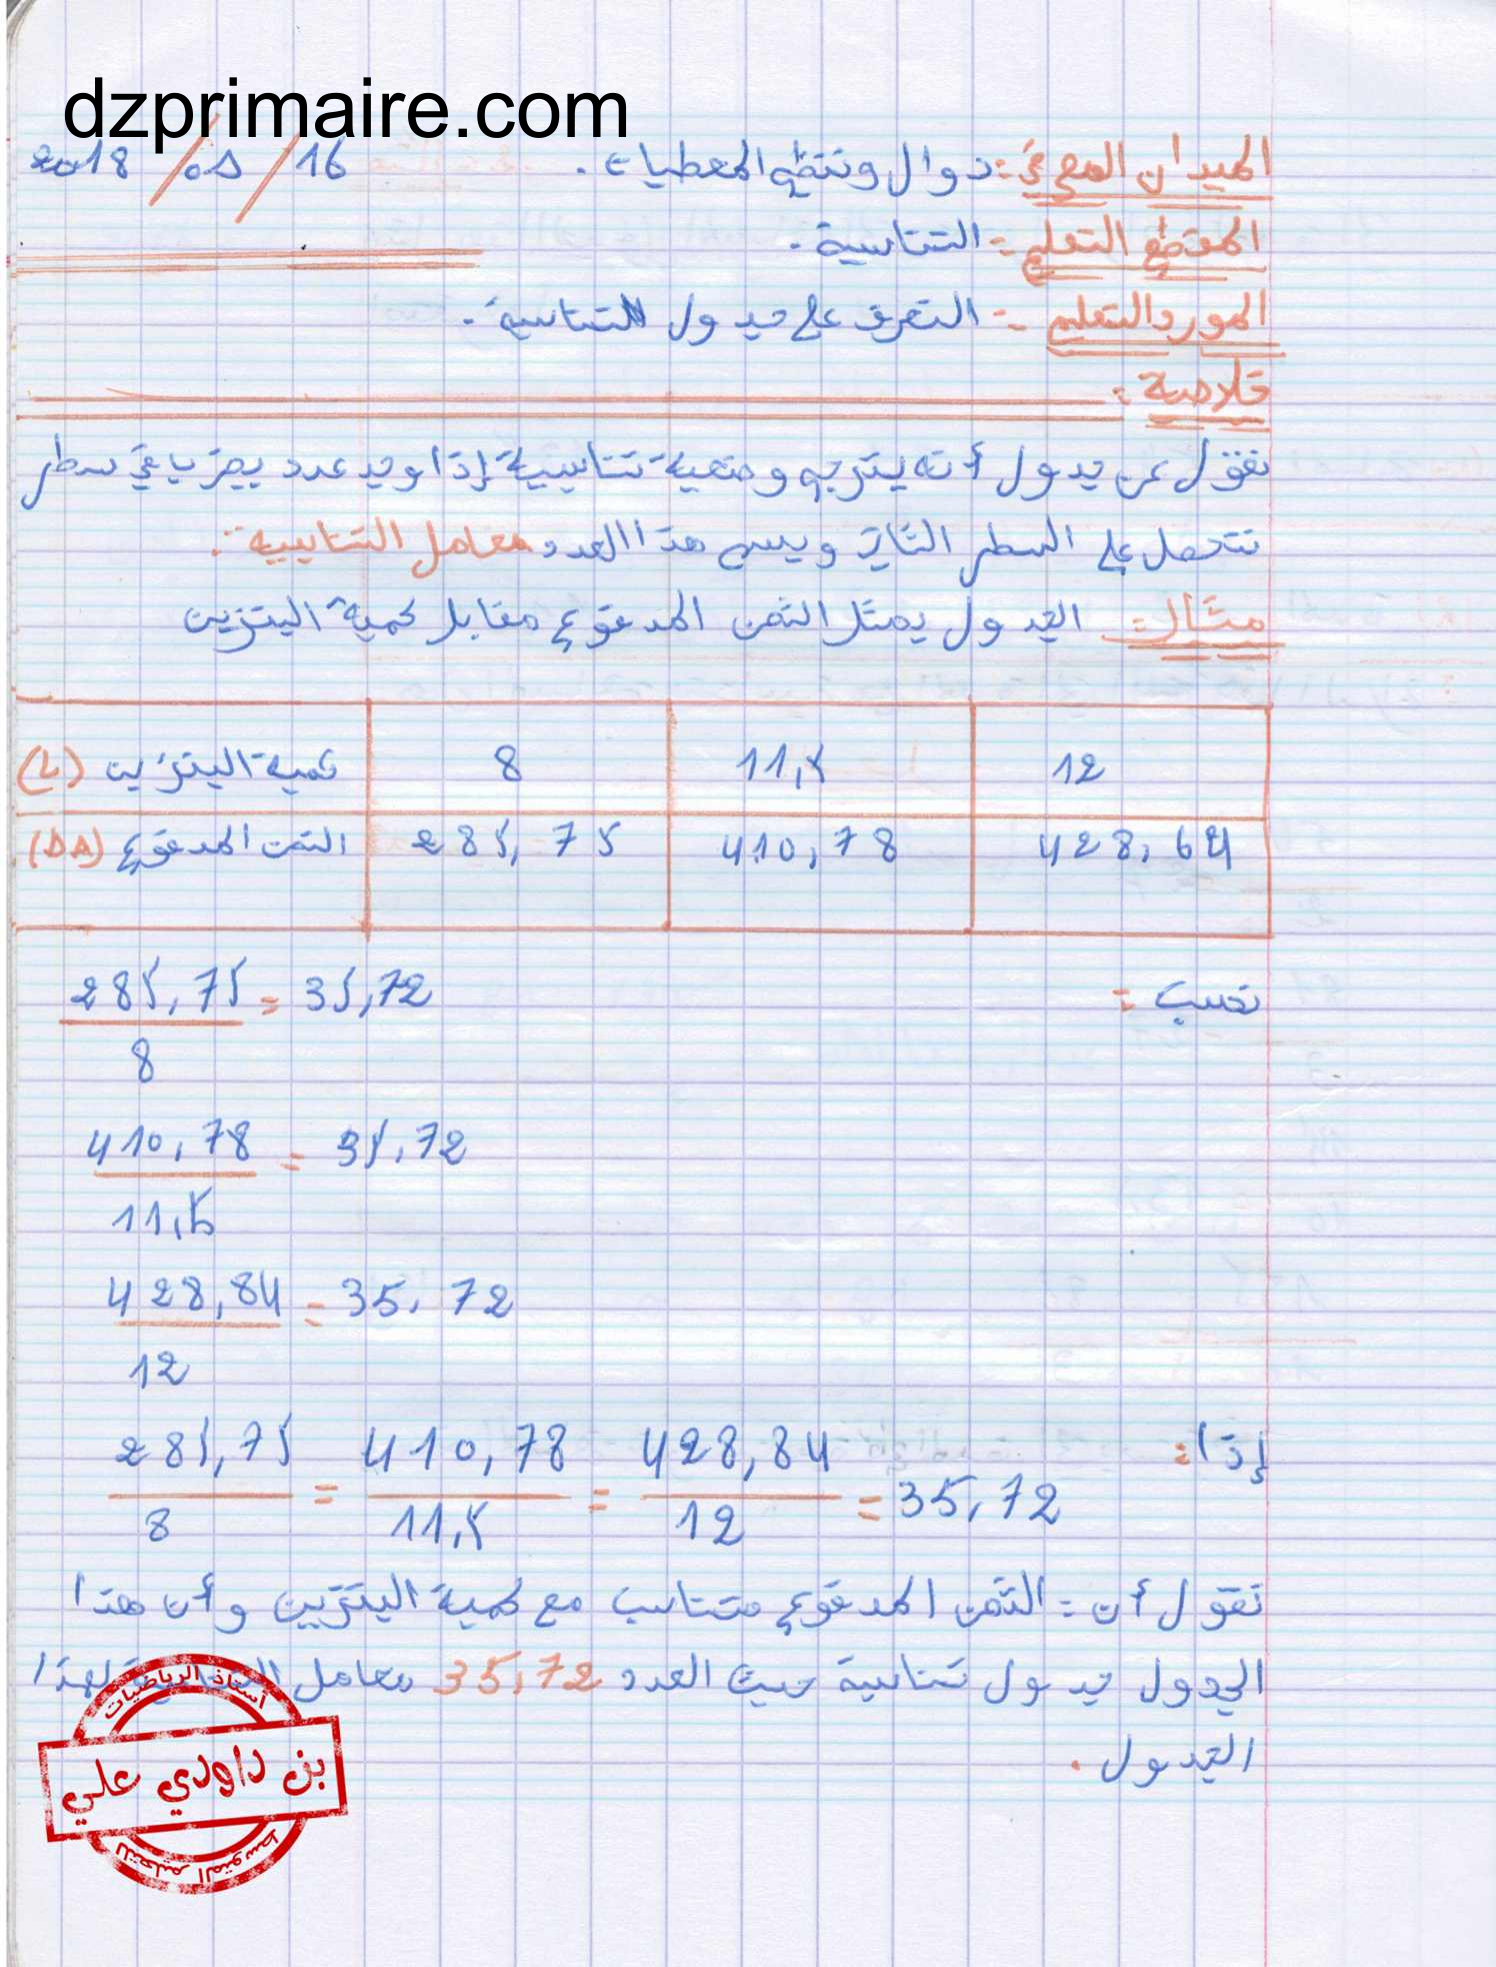 dzprimaire.com
الميدان المعرفي: دوال وتنظيم المعطيات. 16/01/2018
المقطع التعلمي: التناسبية.
المورد التعلمي: التعرف على جدول التناسبية.
خلاصة:
نقول عن جدول أنه يترجم وضعية تناسبية إذا وجد عدد يضرب في سطر
نتحصل على السطر الثاني ويسمى هذا العدد معامل التناسبية.
مثال: الجدول يمثل الثمن المدفوع مقابل كمية البنزين
كمية البنزين (L) 8 11,5 12
الثمن المدفوع (DA) 285,75 410,78 428,64
نحسب:
285,75 = 35,72
8
410,78 = 35,72
11,5
428,84 = 35,72
12
إذا:
285,75/8 = 410,78/11,5 = 428,84/12 = 35,72
نقول أن: الثمن المدفوع متناسب مع كمية البنزين وأن هذا
الجدول جدول تناسبية حيث العدد 35,72 معامل لهذا
الجدول.
أستاذ الرياضيات
بن داودي علي
للتعليم المتوسط